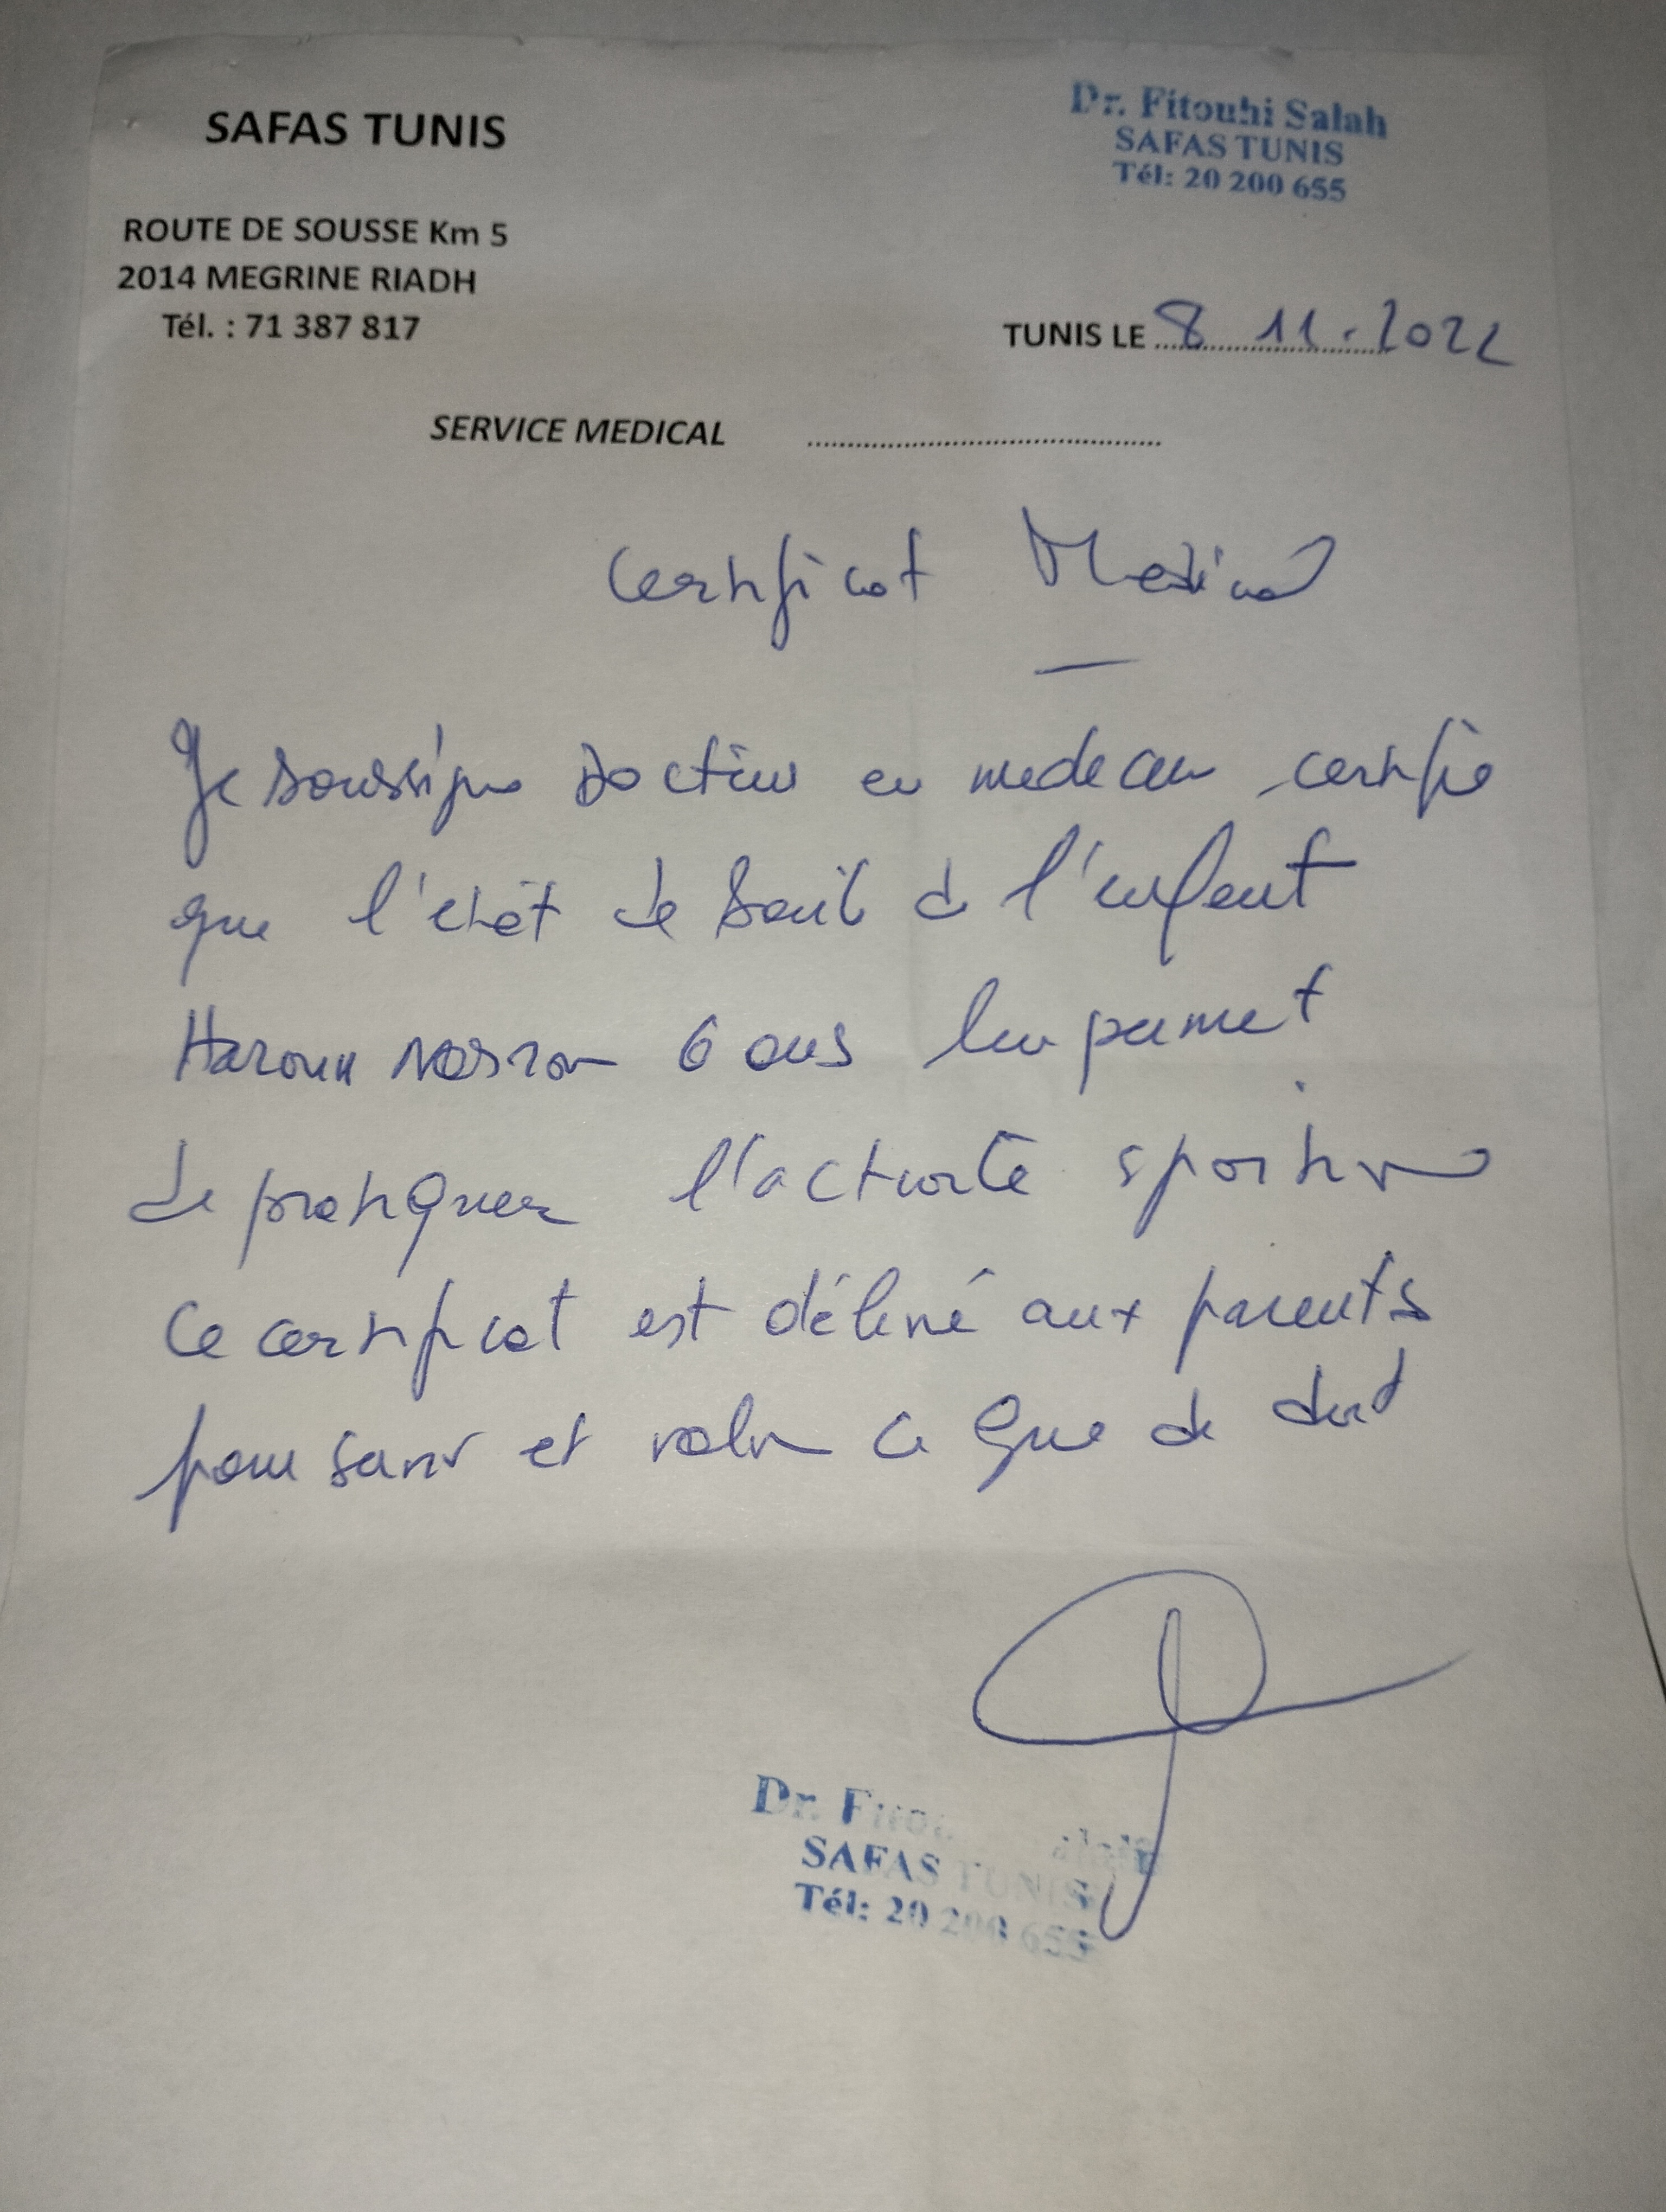 SAFAS TUNIS
Dr. Fitouhi Salah
SAFAS TUNIS
Tél: 20 200 655
ROUTE DE SOUSSE Km 5
2014 MEGRINE RIADH
Tél. : 71 387 817
TUNIS LE 8 11.2022
SERVICE MEDICAL
Certificat Medical
Je soussigne Docteur en medecin certifie
que l'etat de santé de l'enfant
Haroun 6 ans lui permet
de pratiquer l'activité sportive
Ce certificat est délivré aux parents
pour servir et valoir ce que de droit
Dr. Fitouhi Salah
SAFAS TUNIS
Tél: 20 200 655